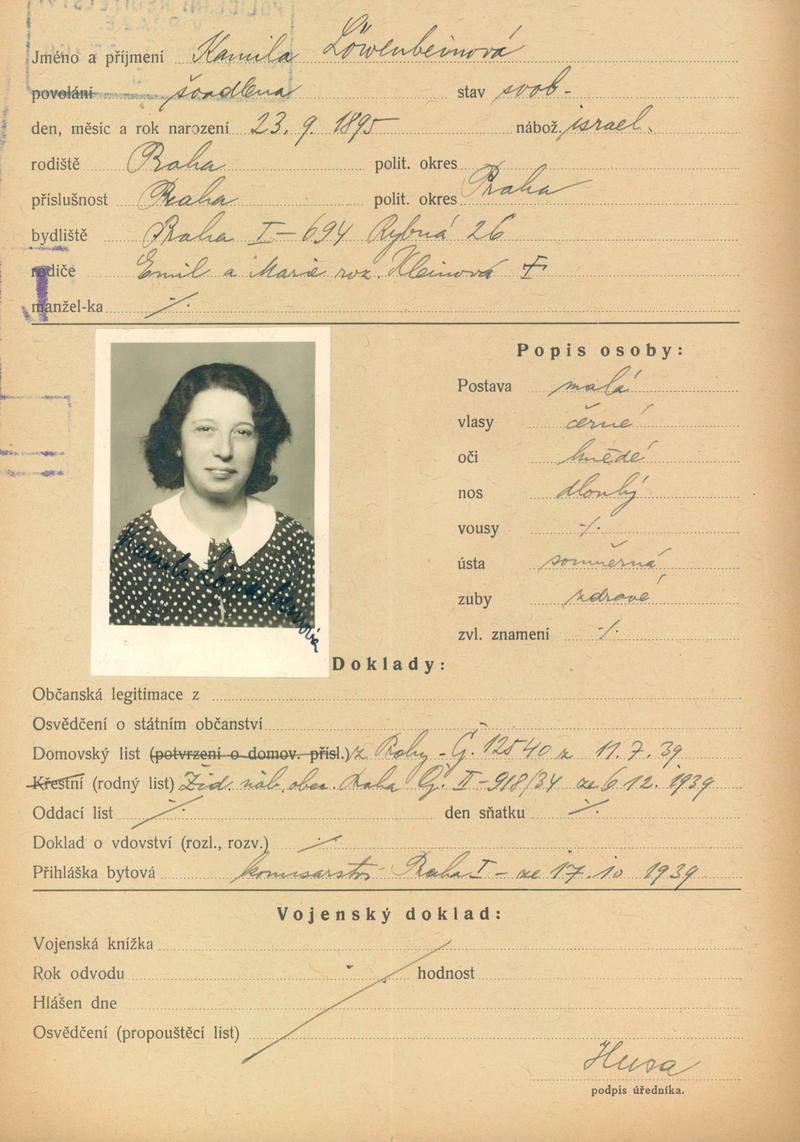 Jméno a příjmení Kamila Löwenbeinová
povolání švadlena stav svob.
den, měsíc a rok narození 23. 9. 1895 nábož. israel.
rodiště Praha polit. okres
příslušnost Praha polit. okres Praha
bydliště Praha I – 694 Rybná 26
rodiče Emil a Marie roz. Kleinová
manžel-ka ./.
J
Popis osoby:
Postava malá
vlasy černé
oči hnědé
nos dlouhý
vousy ./.
ústa souměrná
zuby zdravé
zvl. znamení ./.
Kamila Löwenbeinová
Doklady:
Občanská legitimace z
Osvědčení o státním občanství
Domovský list (potvrzení o domov. přísl.) z Prahy – Č. 12540 z 11. 7. 39
Křestní (rodný list) Žid. náb. obec. Praha Č. II – 918/34 ze 6. 12. 1939
Oddací list ./. den sňatku ./.
Doklad o vdovství (rozl., rozv.) ./.
Přihláška bytová komisařství Praha I – ze 17. 10 1939
Vojenský doklad:
Vojenská knížka
Rok odvodu hodnost
Hlášen dne
Osvědčení (propouštěcí list)
Husa
podpis úředníka.